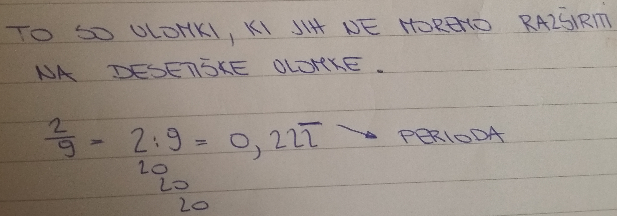 TO SO ULOMKI, KI JIH NE MOREMO RAZŠIRITI
NA DESETIŠKE ULOMKE.
2/9 = 2:9 = 0,222̅ → PERIODA
20
20
20